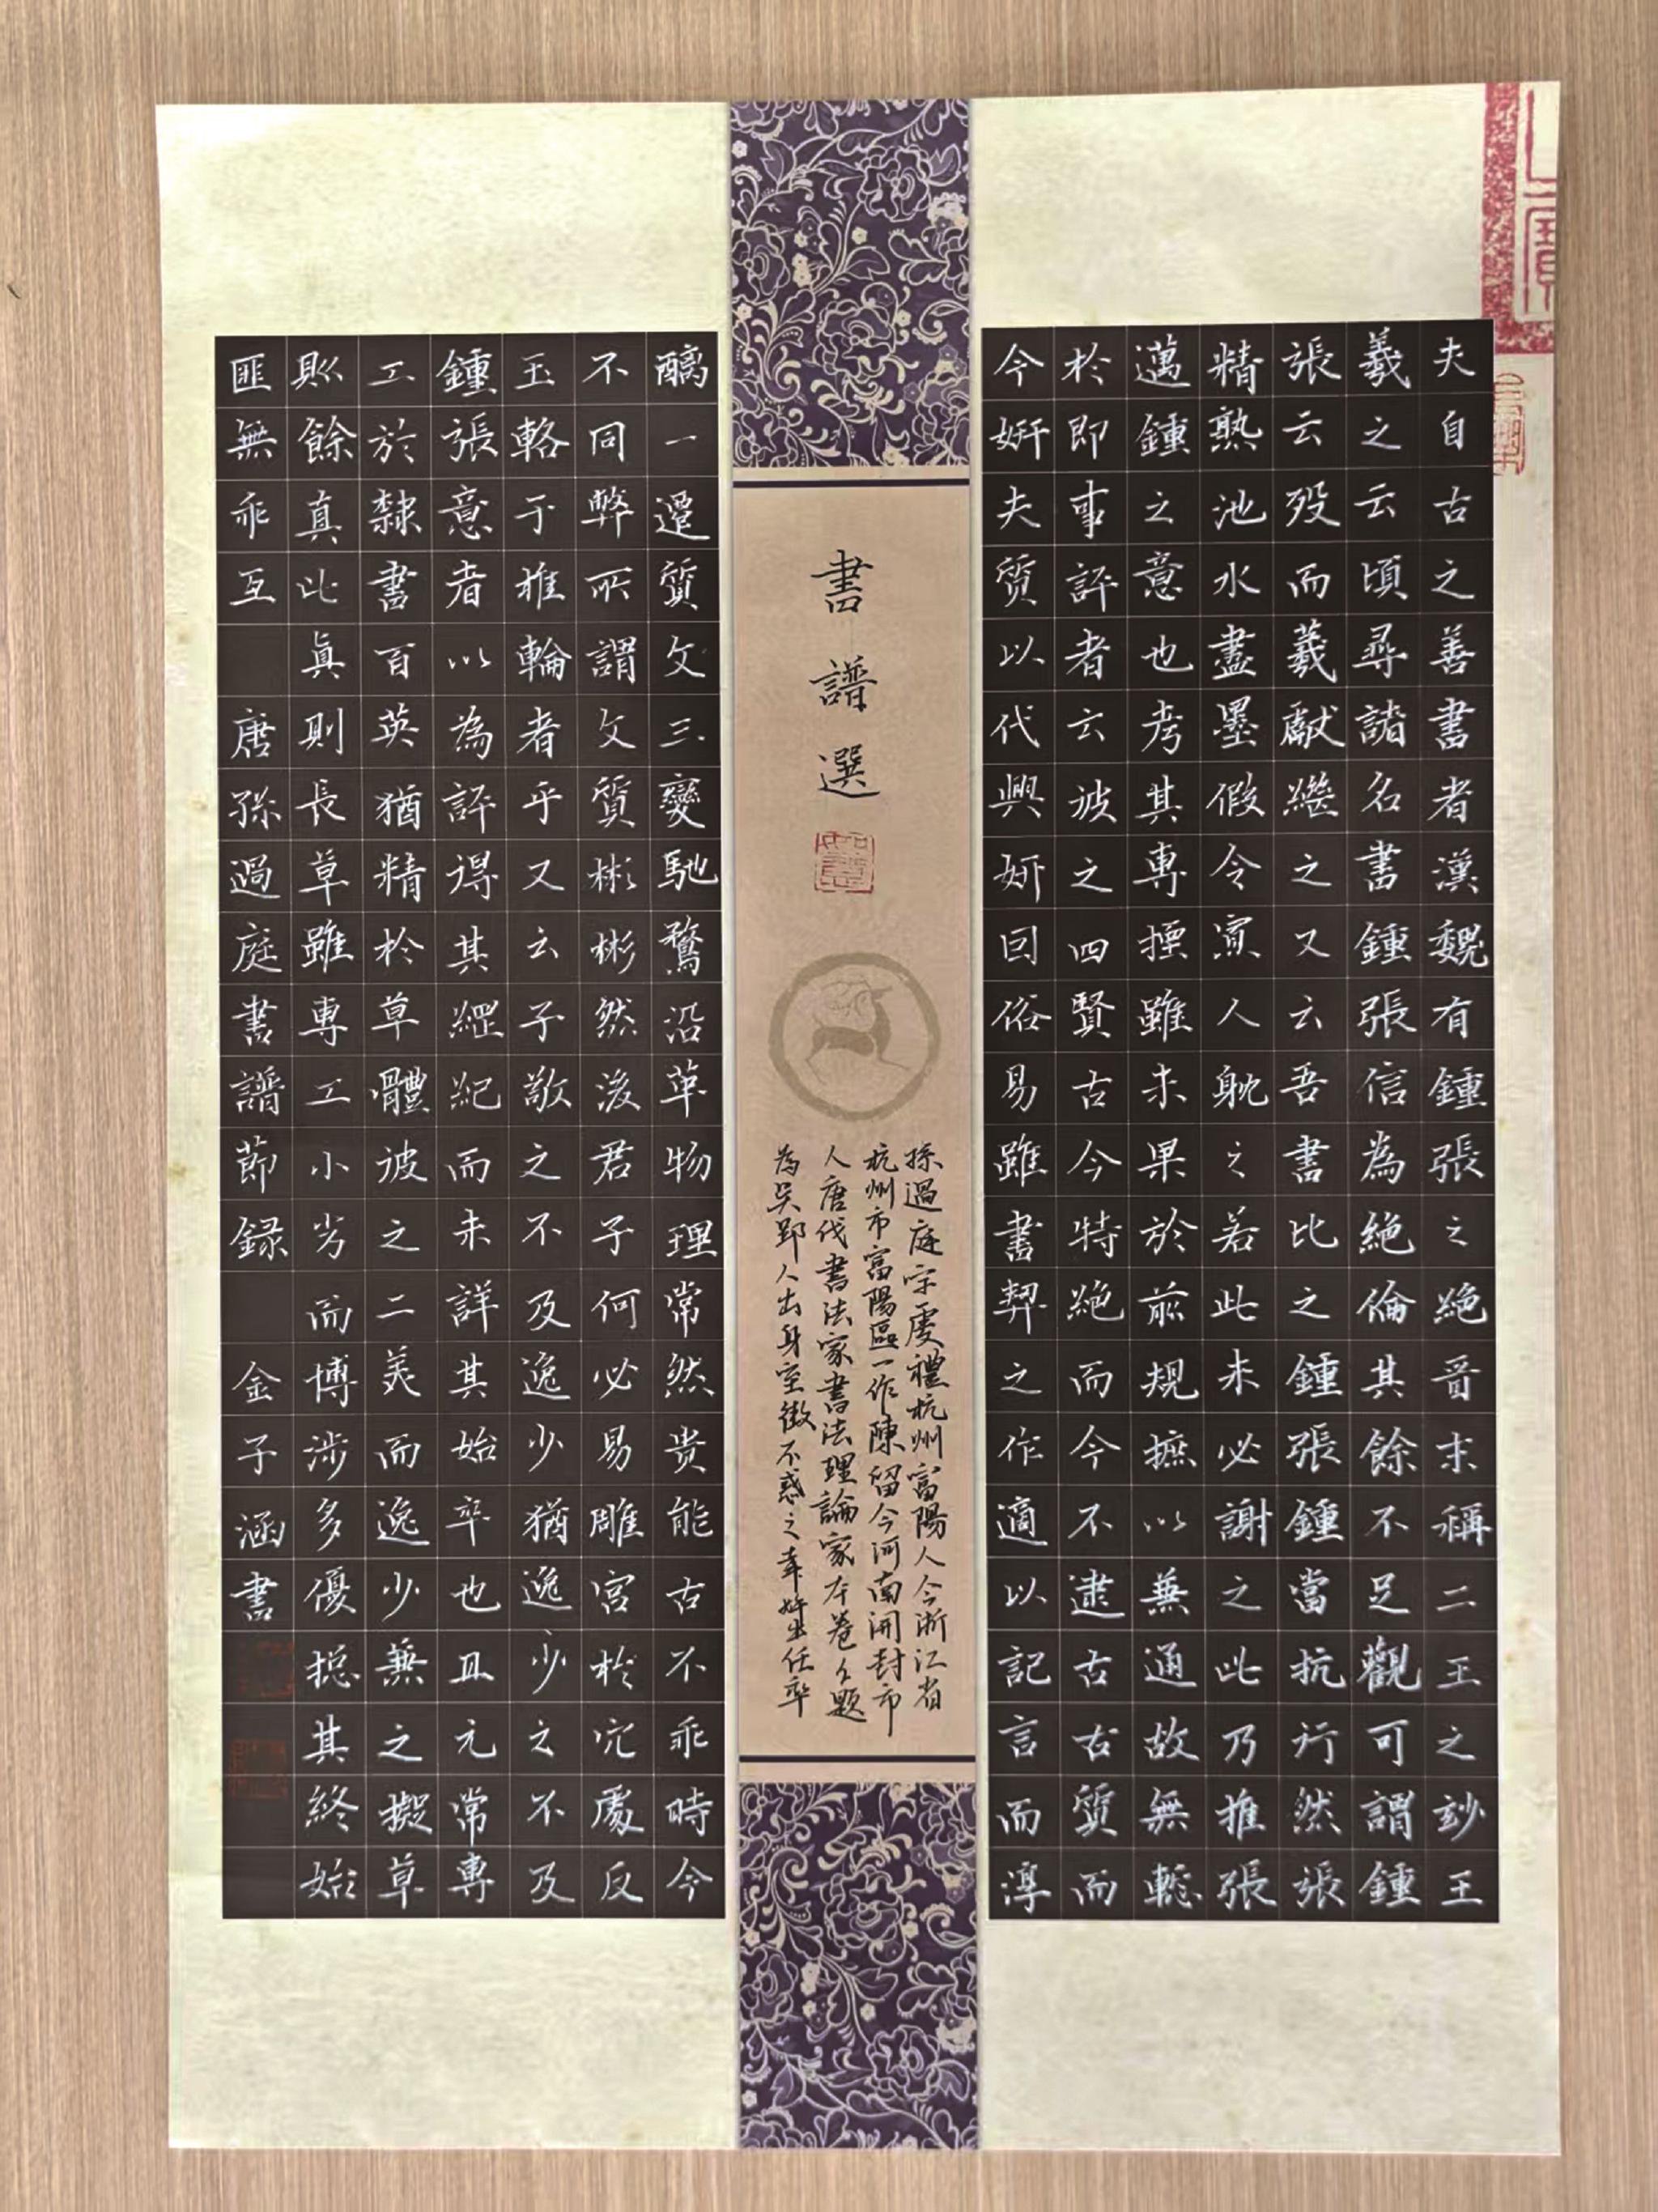 夫自古之善書者漢魏有鍾張之絕晉末稱二王之妙王
羲之云頃尋諸名書鍾張信為絕倫其餘不足觀可謂鍾
張云歿而羲獻繼之又云吾書比之鍾張鍾當抗行然張
精熟池水盡墨假令寡人耽之若此未必謝之此乃推張
邁鍾之意也考其專擅雖未果於前規摭以兼通故無慙
於即事評者云彼之四賢古今特絕而今不逮古古質而
今妍夫質以代興妍因俗易雖書契之作適以記言而淳
書譜選
孫過庭字虔禮杭州富陽人今浙江省
杭州市富陽區一作陳留今河南開封市
人唐代書法家書法理論家本卷上題
為吳郡人出身寒微不惑之年始出任率
醨一遷質文三變馳騖沿革物理常然贵能古不乖時今
不同弊所謂文質彬彬然後君子何必易雕宮於穴處反
玉輅于椎輪者乎又云子敬之不及逸少猶逸少之不及
鍾張意者以為評得其綱紀而未詳其始卒也且元常專
工於隸書百英猶精於草體彼之二美而逸少兼之擬草
則餘真比真則長草雖專工小劣而博涉多優揔其終始
匪無乖互 唐孫過庭書譜節録 金子涵書